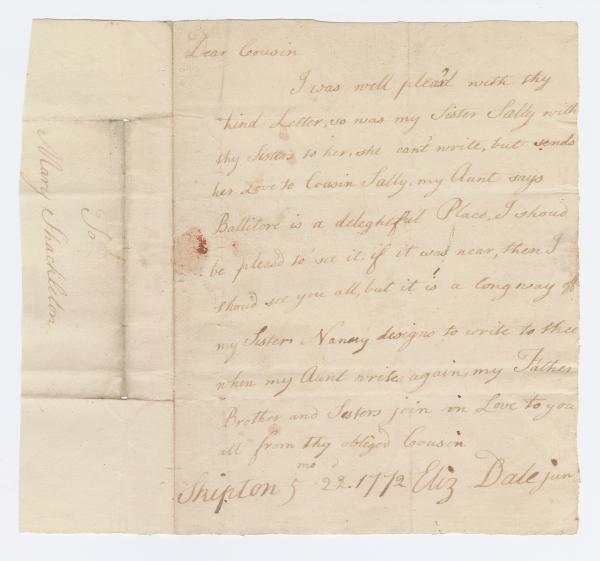 Dear Cousin
I was well pleasd with thy
kind Letter, so was my Sister Sally with
thy Sisters to her, she can't write, but sends
her Love to Cousin Sally, my Aunt says
Ballitore is a deleghtful Place, I should
be pleasd to see it, if it was near, then I
should see you all, but it is a long way off
my Sister Nancy designs to write to thee
when my Aunt writes again, my Father
Brother and Sisters join in Love to you
all from thy obliged Cousin
Skipton 5 mo 22d. 1772 Eliz Dale jun
To
Mary Shackleton